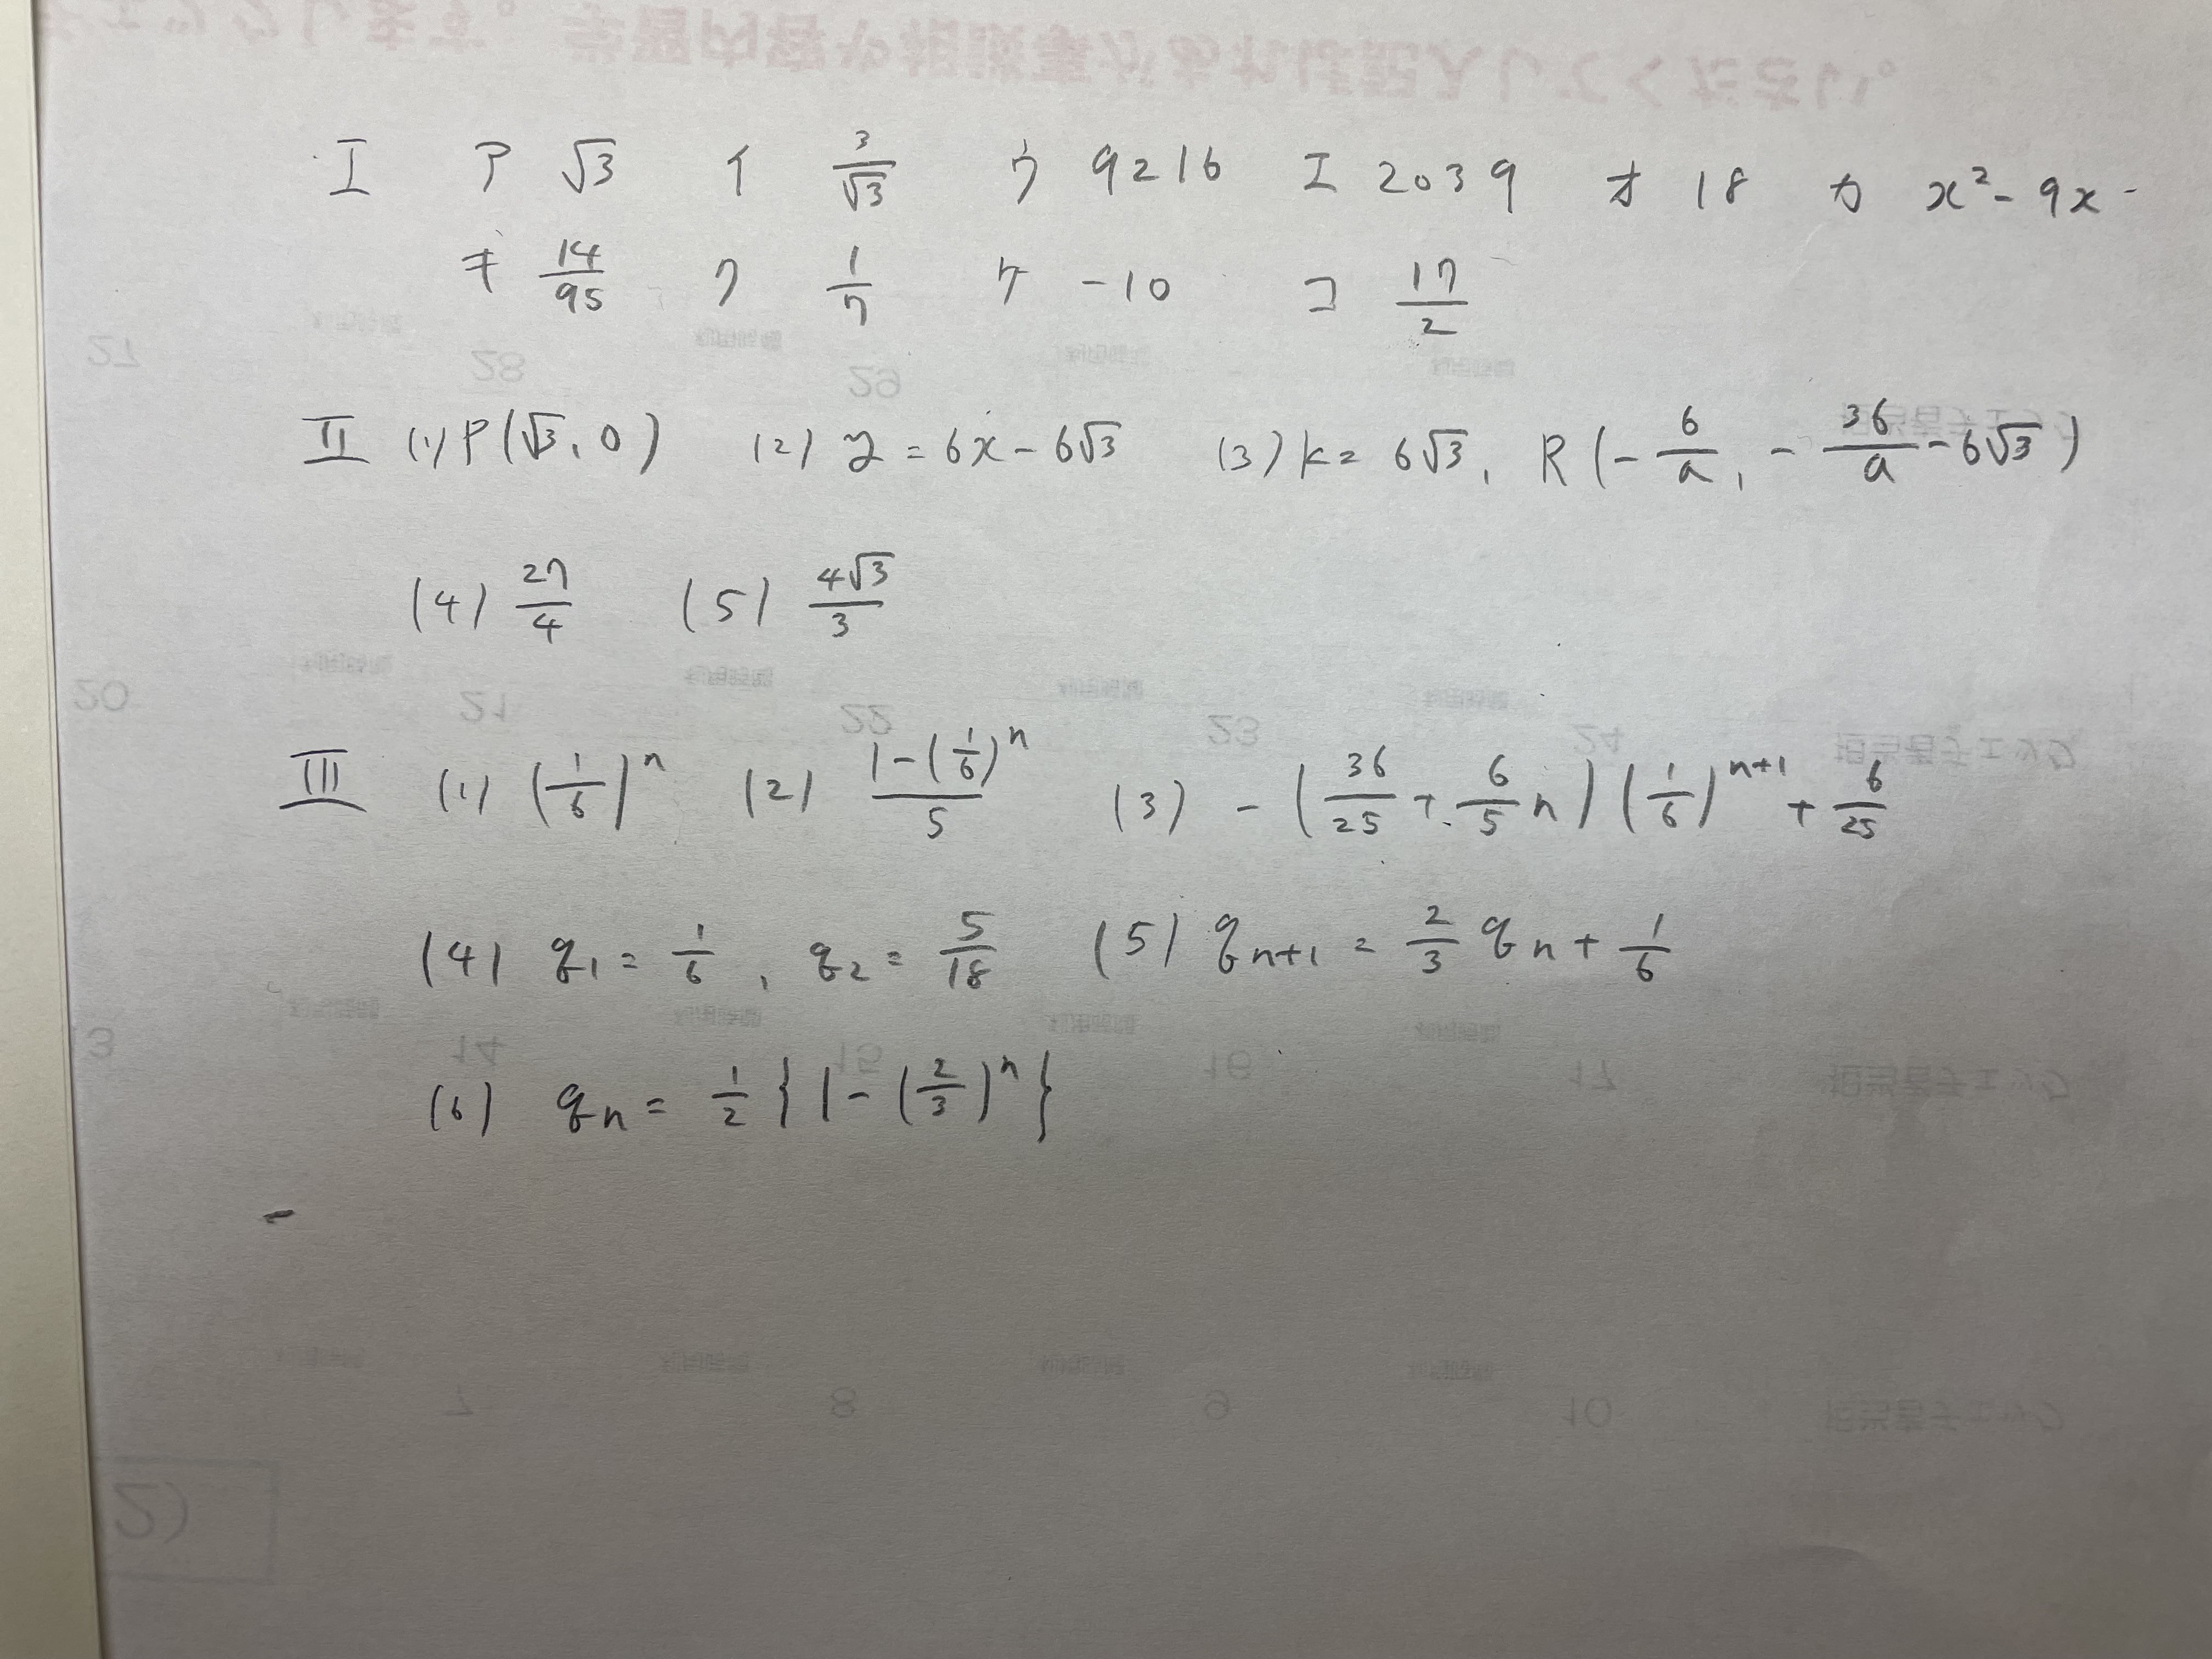 I ア √3 イ 3/√3 ウ 9216 エ 2039 オ 18 カ x²-9x-
キ 14/95 ク 1/7 ケ -10 コ 17/2
II (1) P(√3, 0) (2) y = 6x - 6√3 (3) k = 6√3, R(-6/a, -36/a - 6√3)
(4) 27/4 (5) 4√3/3
III (1) (1/6)^n (2) (1-(1/6)^n)/5 (3) -(36/25 + 6/5 n)(1/6)^(n+1) + 6/25
(4) q₁ = 1/6, q₂ = 5/18 (5) qₙ₊₁ = 2/3 qₙ + 1/6
(6) qₙ = 1/2 {1-(2/3)^n}